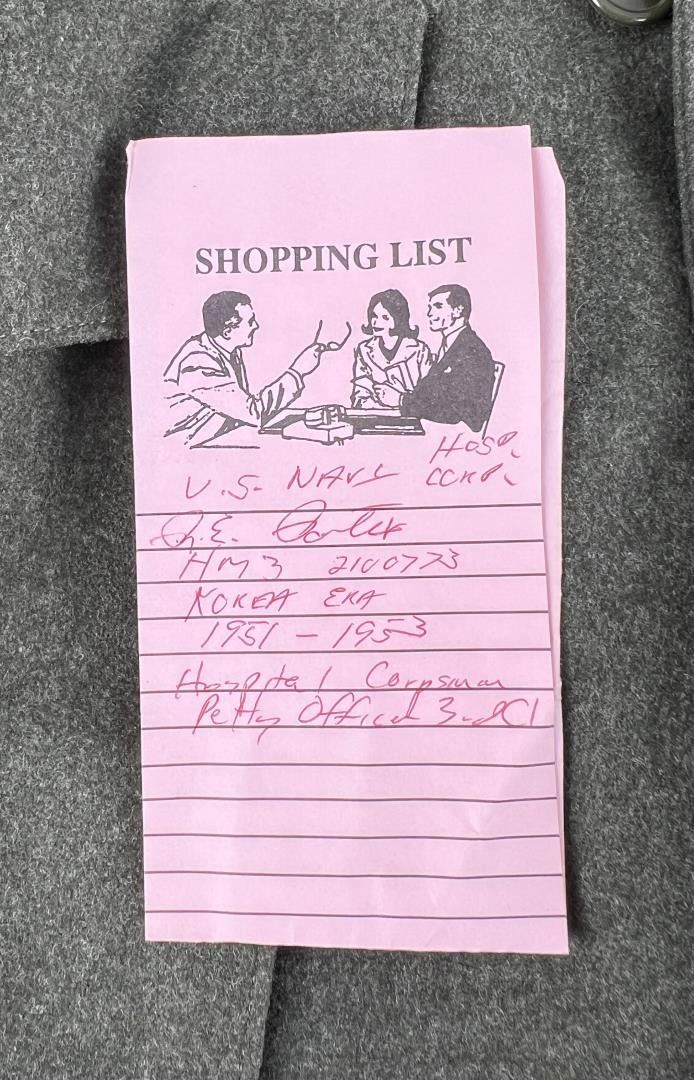 SHOPPING LIST
U.S. NAVY HOSP. CORP.
HM3 2100773
KOREA ERA
1951 - 1953
Hospital Corpsman
Petty Officer 3rd Cl